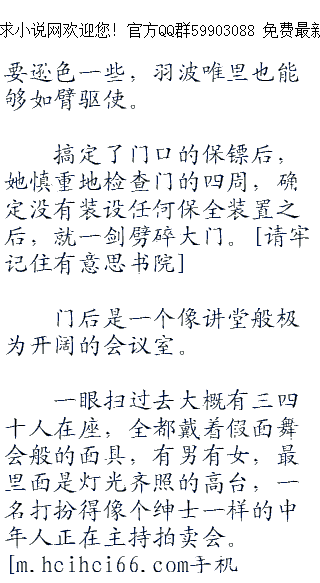 求小说网欢迎您！官方QQ群59903088 免费最新
要逊色一些，羽波唯里也能
够如臂驱使。
搞定了门口的保镖后，
她慎重地检查门的四周，确
定没有装设任何保全装置之
后，就一剑劈碎大门。[请牢
记住有意思书院]
门后是一个像讲堂般极
为开阔的会议室。
一眼扫过去大概有三四
十人在座，全都戴着假面舞
会般的面具，有男有女，最
里面是灯光齐照的高台，一
名打扮得像个绅士一样的中
年人正在主持拍卖会。
[m.hcihci66.com手机